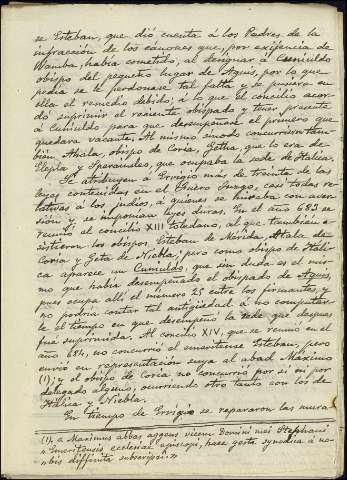 se Esteban, que dió cuenta á los Padres de la
infracción de los cánones que, por exigencia de
Wamba, había cometido, al designar á Cuniuldo
obispo del pequeño lugar de Aquis, por lo que
pedía se le perdonase tal falta y se pusiera en
ella el remedio debido, á lo que el concilio acor-
dó suprimir el reciente obispado y tener presente
á Cuniuldo para que desempeñase el primero que
quedara vacante. Al mismo sínodo concurrieron tam-
bién Atala, obispo de Coria, Getha, que lo era de
Elepla y Speraindeo, que ocupaba la sede de Italica.
Se atribuyen á Ervigio más de treinta de las
leyes contenidas en el Fuero Juzgo, casi todas re-
lativas á los judíos, á quienes se miraba con aver-
sión y se imponían leyes duras. En el año 683 se
reunió el concilio XIII toledano, al que también a-
sistieron los obispos Esteban de Mérida, Atala de
Coria y Geta de Niebla; pero como obispo de Itáli-
ca aparece un Cuniuldo, que sin duda es el mis-
mo que había desempeñado el obispado de Aquis,
pues ocupa allí el numero 25 entre los firmantes, y
no podría contar tal antigüedad á no computár-
sele el tiempo en que desempeñó la sede que después
fué suprimida. Al concilio XIV, que se reunió en el
año 684, no concurrió el emeritense Esteban, pero
envió en representación suya al abad Máximo
(1); y el obispo de Coria no concurrió por sí ni por
delegado alguno, ocurriendo otro tanto con los de
Itálica y Niebla.
En tiempo de Ervigio se repararon las mura-
(1). « Maximus abbas agens vicem Domini mei Stephani
" Emeritensis ecclesiae episcopi, haec gesta synodica á no-
" bis diffinita subscripsi. "